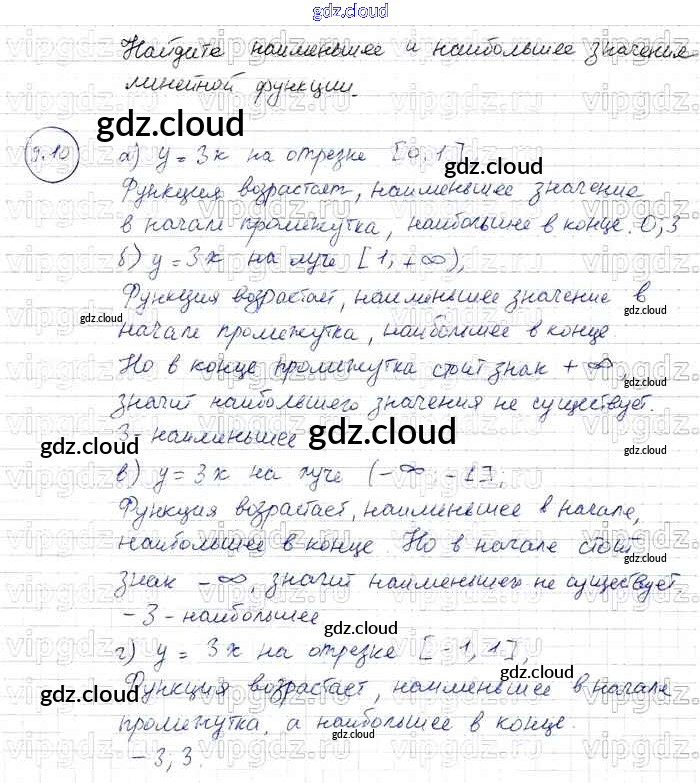 gdz.cloud
Найдите наименьшее и наибольшее значения
линейной функции.
gdz.cloud
9.10 а) y = 3x на отрезке [0, 1]
gdz.cloud
Функция возрастает, наименьшее значение
в начале промежутка, наибольшее в конце. 0; 3
б) y = 3x на луче [1, +∞);
gdz.cloud
Функция возрастает, наименьшее значение в
gdz.cloud
gdz.cloud
начале промежутка, наибольшее в конце
Но в конце промежутка стоит знак +∞,
gdz.cloud
значит наибольшего значения не существует.
3 - наименьшее
gdz.cloud
gdz.cloud
gdz.cloud
в) y = 3x на луче (-∞ -1];
Функция возрастает, наименьшее в начале,
наибольшее в конце. Но в начале стоит
gdz.cloud
знак -∞, значит наименьшего не существует.
-3 - наибольшее
gdz.cloud
г) y = 3x на отрезке [-1, 1],
gdz.cloud
gdz.cloud
Функция возрастает, наименьшее в начале
промежутка, а наибольшее в конце.
gdz.cloud
-3; 3.